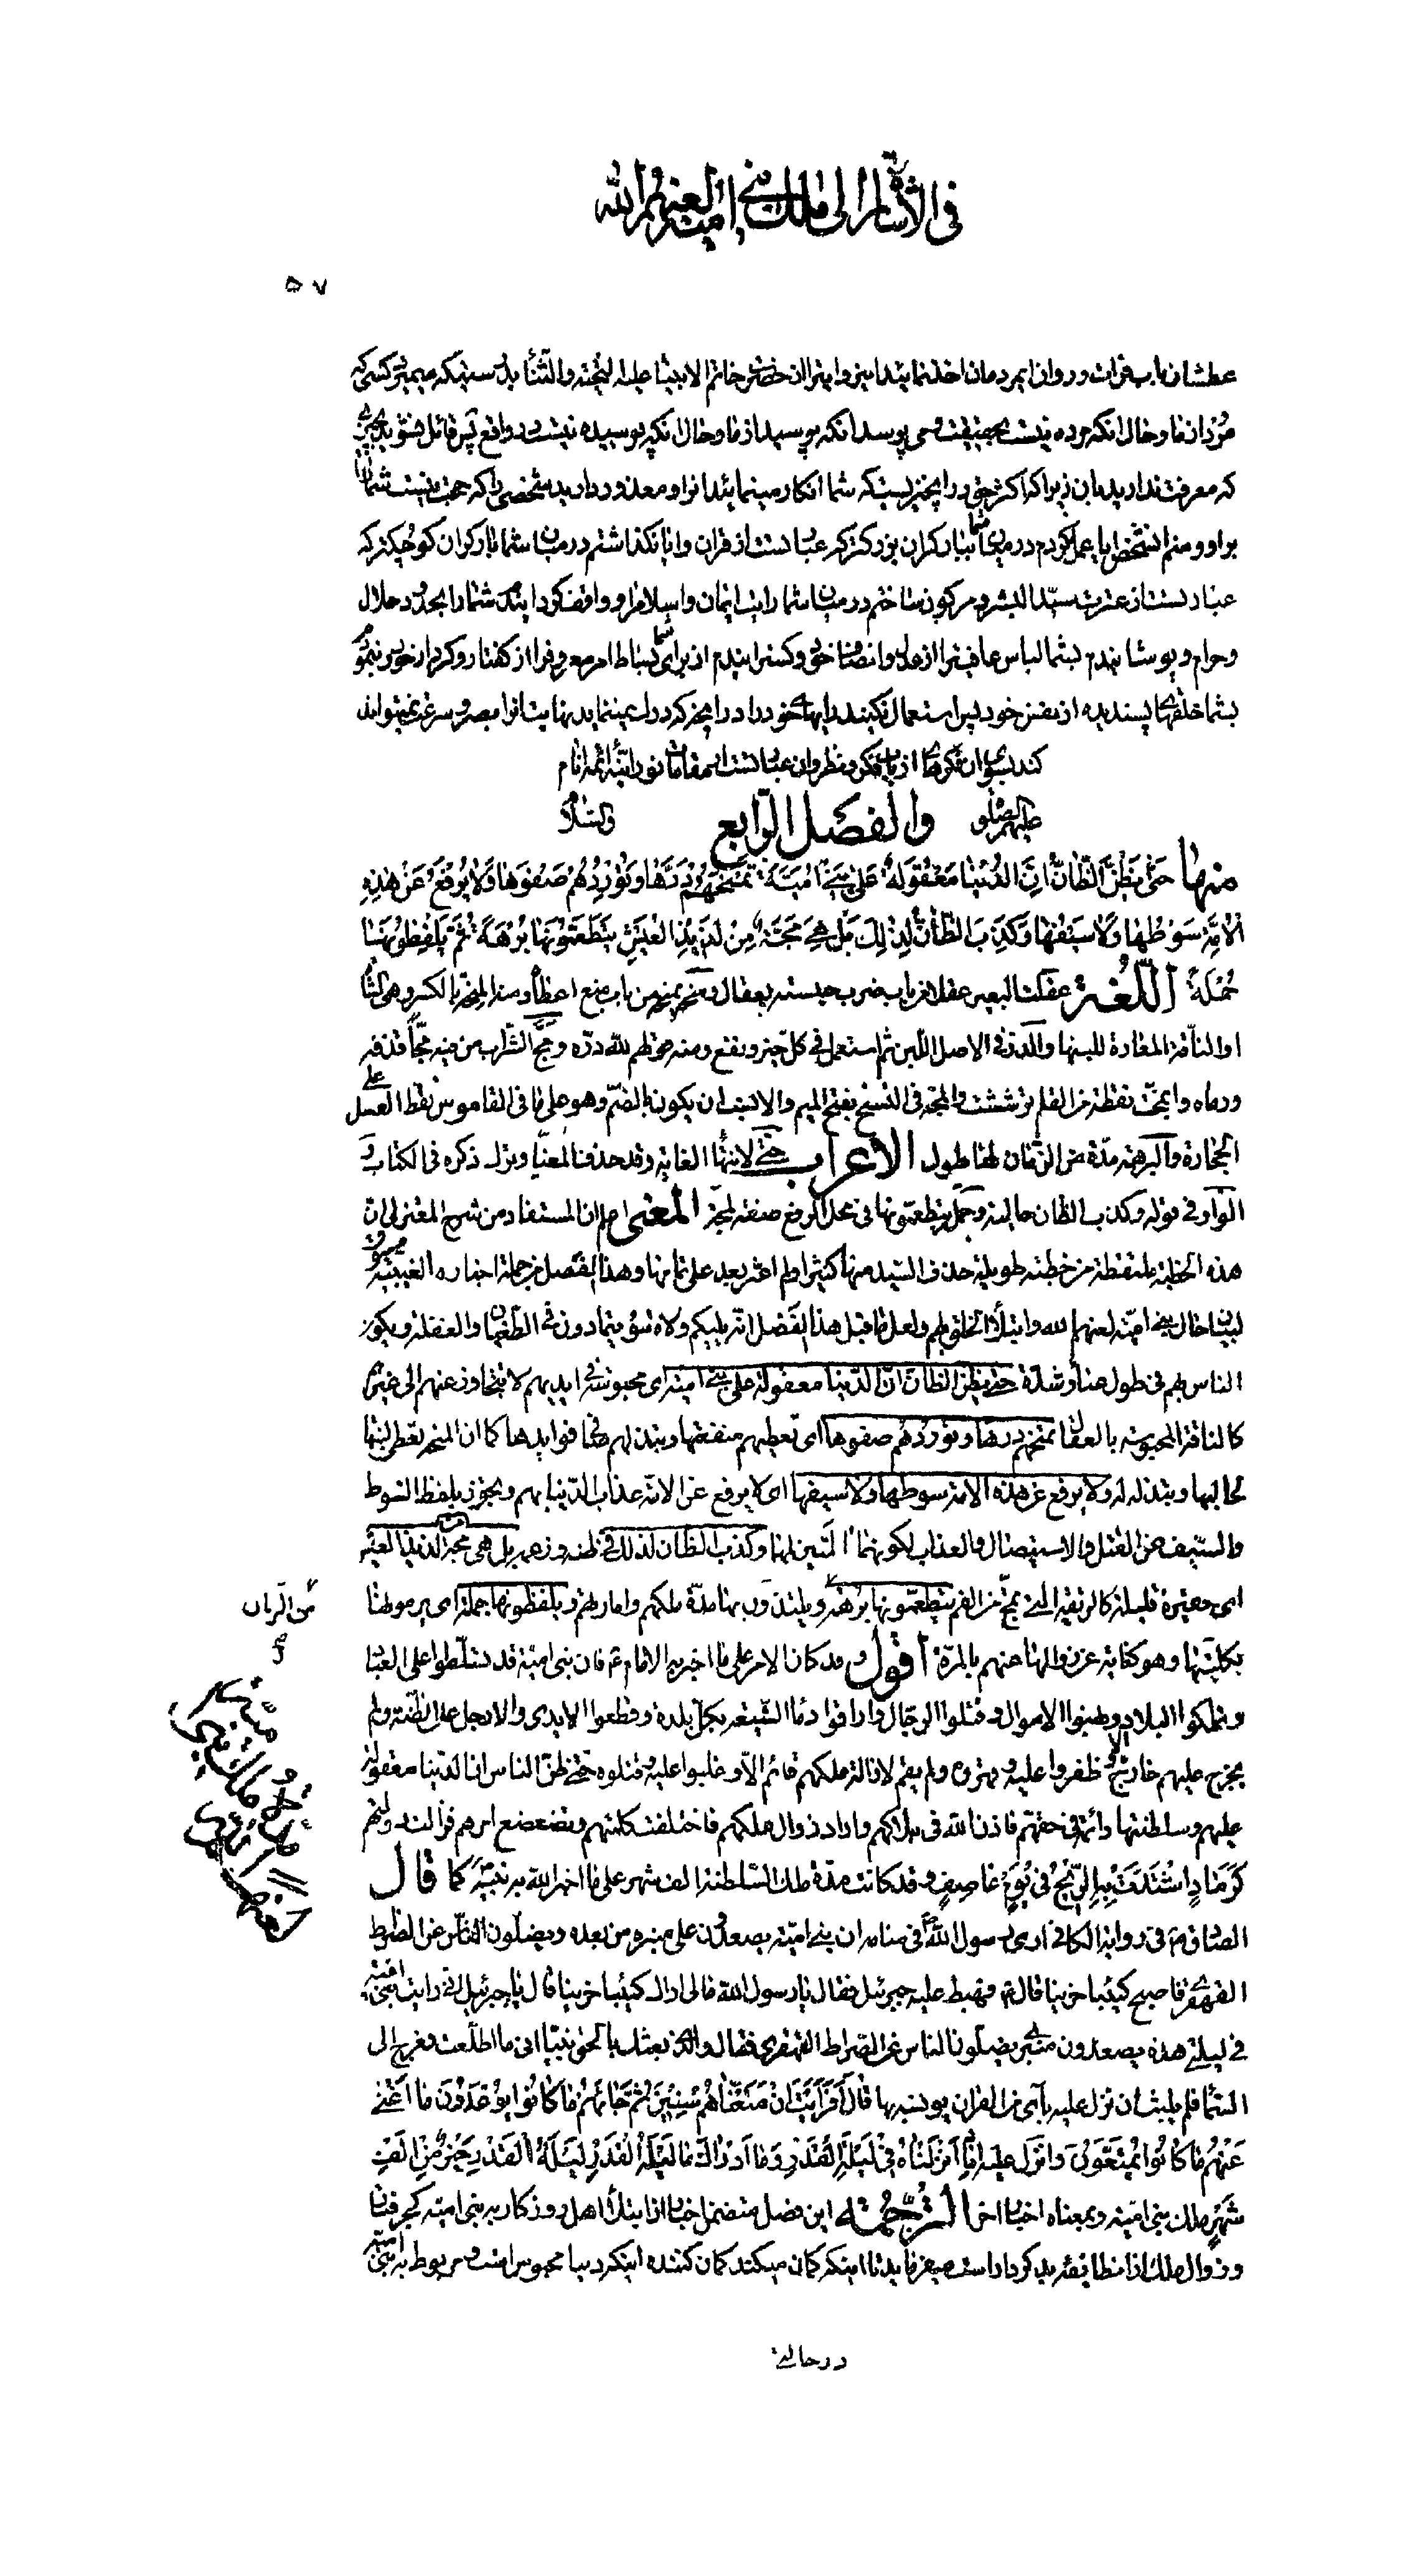 فی الاشارة الی ملك بنی امیة لعنهم الله
۵۷
عطشان بآب فرات و روان ایمردمان اخذ نمائید این روایترا از حضرت خاتم الانبیا علیه التحیة والثنا بدرستیکه میمیرد کسی که
مرد از ما و حال آنکه مرده نیست بحقیقت و می پوسد آنکه پوسید از ما و حال آنکه پوسیده نیست در واقع پس قائل نشوید بچیزی
که معرفت ندارید بآن زیرا که اکثر حق در آنچیزیست که شما انکار مینمائید آنرا و معذور دارید شخصی را که حجت نیست شما را
بر او و منم آنشخص آیا عمل نکردم در میان شما ببار گران بزرگتر که عبارتست از قرآن و آیا نگذاشتم در میان شما بار گران کوچکتر که
عبارتست از عترت سید البشر و مرکوز ساختم در میان شما رایت ایمان و اسلام را و واقف گردانیدم شما را بحدود حلال
و حرام و پوشانیدم بشما لباس عافیترا از عدل و انصاف خود و گسترانیدم از برای شما بساط امر معروفرا از گفتار و کردار خود و نمودم
بشما خلقهای پسندیده از نفس خود پس استعمال نکنید رأیهای خود را در آنچه که درك نمینماید نهایت آنرا بصر و سرعت نمیتواند
کند بسوی آن فکرها از باب فکر و نظر و آن عبارتست از مقامات نورانیة ائمه انام
علیهم الصلوة والسلام
والفصل الرابع
منها حَتّی یَظُنَّ الظّانُّ اَنَّ الدُّنْیا مَعْقُولَةٌ عَلی بَنی اُمَیَّةَ تَمْنَحُهُمْ دَرَّها وَتُورِدُهُمْ صَفْوَها وَلا یُرْفَعُ عَنْ هذِهِ
الْاُمَّةِ سَوْطُها وَلا سَیْفُها وَکَذِبَ الظّانُّ لِذلِكَ بَلْ هِیَ مَجَّةٌ مِنْ لَذیذِ الْعَیْشِ یَتَطَعَّمُونَها بُرْهَةً ثُمَّ یَلْفِظُونَها
جُمْلَةً اللغة عقلت البعیر عقلا من باب ضرب حبسته بعقال و منح یمنح من باب منع اعطاه و منه المنحة بالکسر وهی الشاة
او الناقة المعارة للبنها والدر فی الاصل اللبن ثم استعمل فی کل خیر و نفع و منه قولهم لله درّه و مجّ الشراب من فیه مجّا قذفه
و رماه و انمجّت نقطة من القلم ترششت والمجة فی النسخ بفتح المیم والانسب ان یکون بالضم وهو علی ما فی القاموس نقط العسل علی
الحجارة والبرهة مدة من الزمان لها طول الاعراب حتی لانتهاء الغایة و قد حذف المغیا و نزل ذکره فی الکتاب و
الواو فی قوله و کذب الظان حالیة و جملة یتطعمونها فی محل الرفع صفة لمجة المعنی اعلم ان المستفاد من شرح المعتزلی ان
هذه الخطبة ملتقطة من خطبة طویلة حذف السید منها کثیرا ولم اعثر بعد علی تمامها وهذا الفصل من جملة اخباره الغیبیة مسوق
لبیان حال بنی امیة لعنهم الله وابتلاء الخلق بهم ولعل ما قبل هذا الفصل انه یلیکم ولاة سوء یتمادون فی الطغیان والغفلة و یکون
الناس بهم فی طول عناء و شدّة حتی یظن الظان ان الدنیا معقولة علی بنی امیة ای محبوسة فی ایدیهم لا تتجاوز عنهم الی غیرهم
کالناقة المحبوسة بالعقال تمنحهم درها و توردهم صفوها ای تعطیهم منفعتها و یتبذل لهم فوایدها کما ان المنحة تعطی لبنها
لحالبها و یتبذله له ولا یرفع عن هذه الامة سوطها ولا سیفها ای لا یرفع عن الامة عذاب الدنیا بهم و تجوز بلفظ السوط
والسیف عن القتل والاستیصال والعذاب لکونهما آلتین لها و کذب الظان لذلك فی ظنه و زعمه بل هی مجة من لذیذ العیش
ای حقیرة قلیلة کالریقة التی تمجّ من الفم یتطعمونها برهة و یلتذون بها مدة ملکهم و امارتهم و یلفظونها جملة ای یرمونها
بکلیتها وهو کنایة عن زوالها عنهم بالمرّة اقول و قد کان الامر علی ما اخبر به الامام ع فان بنی امیة قد تسلطوا علی العباد
و تملکوا البلاد و نهبوا الاموال و قتلوا الرجال و اراقوا دماء الشیعة بکل بلدة و قطعوا الایدی والارجل علی الظنة ولم
یخرج علیهم خارج الا ظفروا علیه و قهروه ولم یقم لازالة ملکهم قائم الا و غلبوا علیه و قتلوه حتی ظن الناس ان الدنیا معقولة
علیهم و سلطنتها دائمة فی حقهم فاذن الله فی هلاکهم و اراد زوال ملکهم فاختلفت کلمتهم و تضعضع امرهم
کَرَمادٍ اشْتَدَّتْ بِهِ الرّیحُ فی یَوْمٍ عاصِفٍ و قد کانت مدة تلك السلطنة الف شهر علی ما اخبر الله به نبیه کما قال
الصادق ع فی روایة الکافی اری رسول الله ص فی منامه ان بنی امیة یصعدون علی منبره من بعده و یضلون الناس عن الصراط
القهقری فاصبح کئیبا حزینا قال ع فهبط علیه جبرئیل فقال یا رسول الله مالی اراك کئیبا حزینا قال یا جبرئیل انی رایت بنی امیة
فی لیلتی هذه یصعدون منبری یضلون الناس عن الصراط القهقری فقال والذی بعثك بالحق نبیا انی ما اطلعت فعرج الی
السماء فلم یلبث ان نزل علیه بآی من القرآن یونسه بها قال اَفَرَاَیْتَ اِنْ مَتَّعْناهُمْ سِنینَ ثُمَّ جائَهُمْ ما کانُوا یُوعَدُونَ ما اَغْنی
عَنْهُمْ ما کانُوا یُمَتَّعُونَ و انزل علیه اِنّا اَنْزَلْناهُ فی لَیْلَةِ الْقَدْرِ وَما اَدْراكَ ما لَیْلَةُ الْقَدْرِ لَیْلَةُ الْقَدْرِ خَیْرٌ مِنْ اَلْفِ
شَهْرٍ ملك بنی امیة و بمعناه اخبار اخر الترجمة این فصل متضمن اخبار از ابتلاء اهل روزگار به بنی امیة کجرفتار
و زوال ملك از آنطایفه بدکردار است میفرماید تا اینکه گمان میکند گمان کننده اینکه دنیا محبوس است و مربوط به بنی امیة
من الزمان
مدة ملك بنی امیة
در حالتی